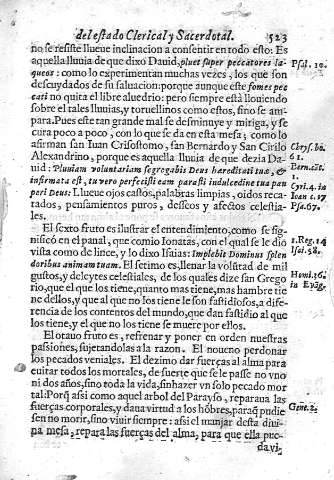 del estado Clerical, y Sacerdotal. 523
no se resiste llueue inclinacion a consentir en todo esto: Es
aquella lluuia de que dixo Dauid, pluet super peccatores la- Psal. 10.
queos: como lo experimentan muchas vezes, los que son
descuydados de su saluacion: porque aunque este fomes pec
cati no quita el libre aluedrio: pero siempre està lloviendo
sobre el tales lluuias, y toruellinos como estos, sino se am-
para. Pues este tan grande mal se desminuye y mitiga, y se
cura poco a poco, con lo que se da en esta mesa; como lo
afirman san Iuan Crisostomo, san Bernardo y San Cirilo Chrys. ho.
Alexandrino, porque es aquella lluuia de que dezia Da- 61.
uid: Pluuiam voluntariam segregabis Deus hæreditati tuæ, & Bern.
infirmata est, tu vero perfecisti eam parasti indulcedine tua pau Cyri. 4. in
peri Deus: Llueue ojos castos, palabras limpias, oidos reca- Ioan c. 17
tados, pensamientos puros, desseos y afectos celestia- Psa. 67.
les.
El sexto fruto es ilustrar el entendimiento, como se sig-
nificò en el panal, que comio Ionatas, con el qual se le dio 1. Reg. 14
vista como de lince, y lo dixo Isaias: Implebit Dominus splen Isai. 58.
doribus animam tuam. El setimo es, llenar la volũtad de mil
gustos, y deleytes celestiales, de los quales dize san Grego Homi. 36.
rio, que el que los tiene, quanto mas tiene, mas hambre tie in Euãg.
ne dellos, y al que no los tiene le son fastidiosos, a dife-
rencia de los contentos del mundo, que dan fastidio al que
los tiene, y el que no los tiene se muere por ellos.
El otauo fruto es, refrenar y poner en orden nuestras
passiones, sujetandolas a la razon. El noueno perdonar
los pecados veniales. El dezimo dar fuerças al alma para
euitar todos los mortales, de fuerte que se le passe no vno
ni dos años, sino toda la vida, sin hazer vn solo pecado mor
tal: Porq̃ assi como aquel arbol del Parayso, reparaua las
fuerças corporales, y daua virtud a los hõbres, paraq̃ pudie Gene. 2.
sen no morir, sino viuir siempre: assi el manjar desta diui-
na mesa, repara las fuerças del alma, para que ella pue-
da vi-